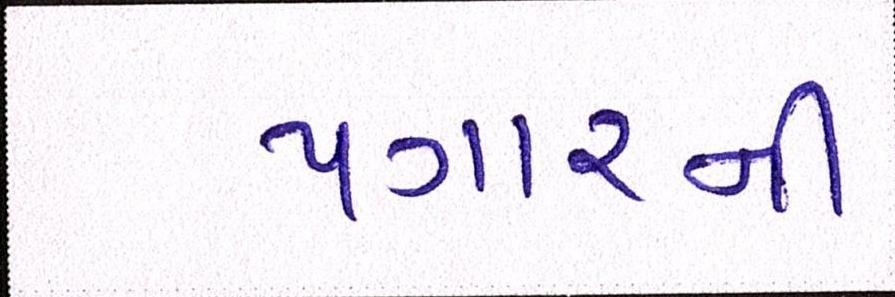 પગારની